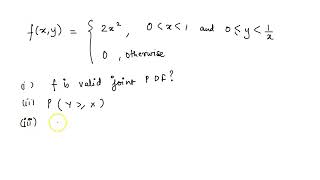 f(x,y) = { 2x², 0 < x < 1 and 0 ≤ y < 1/x
0, otherwise
i) f is valid joint PDF?
(ii) P(Y ≥ X)
(iii)